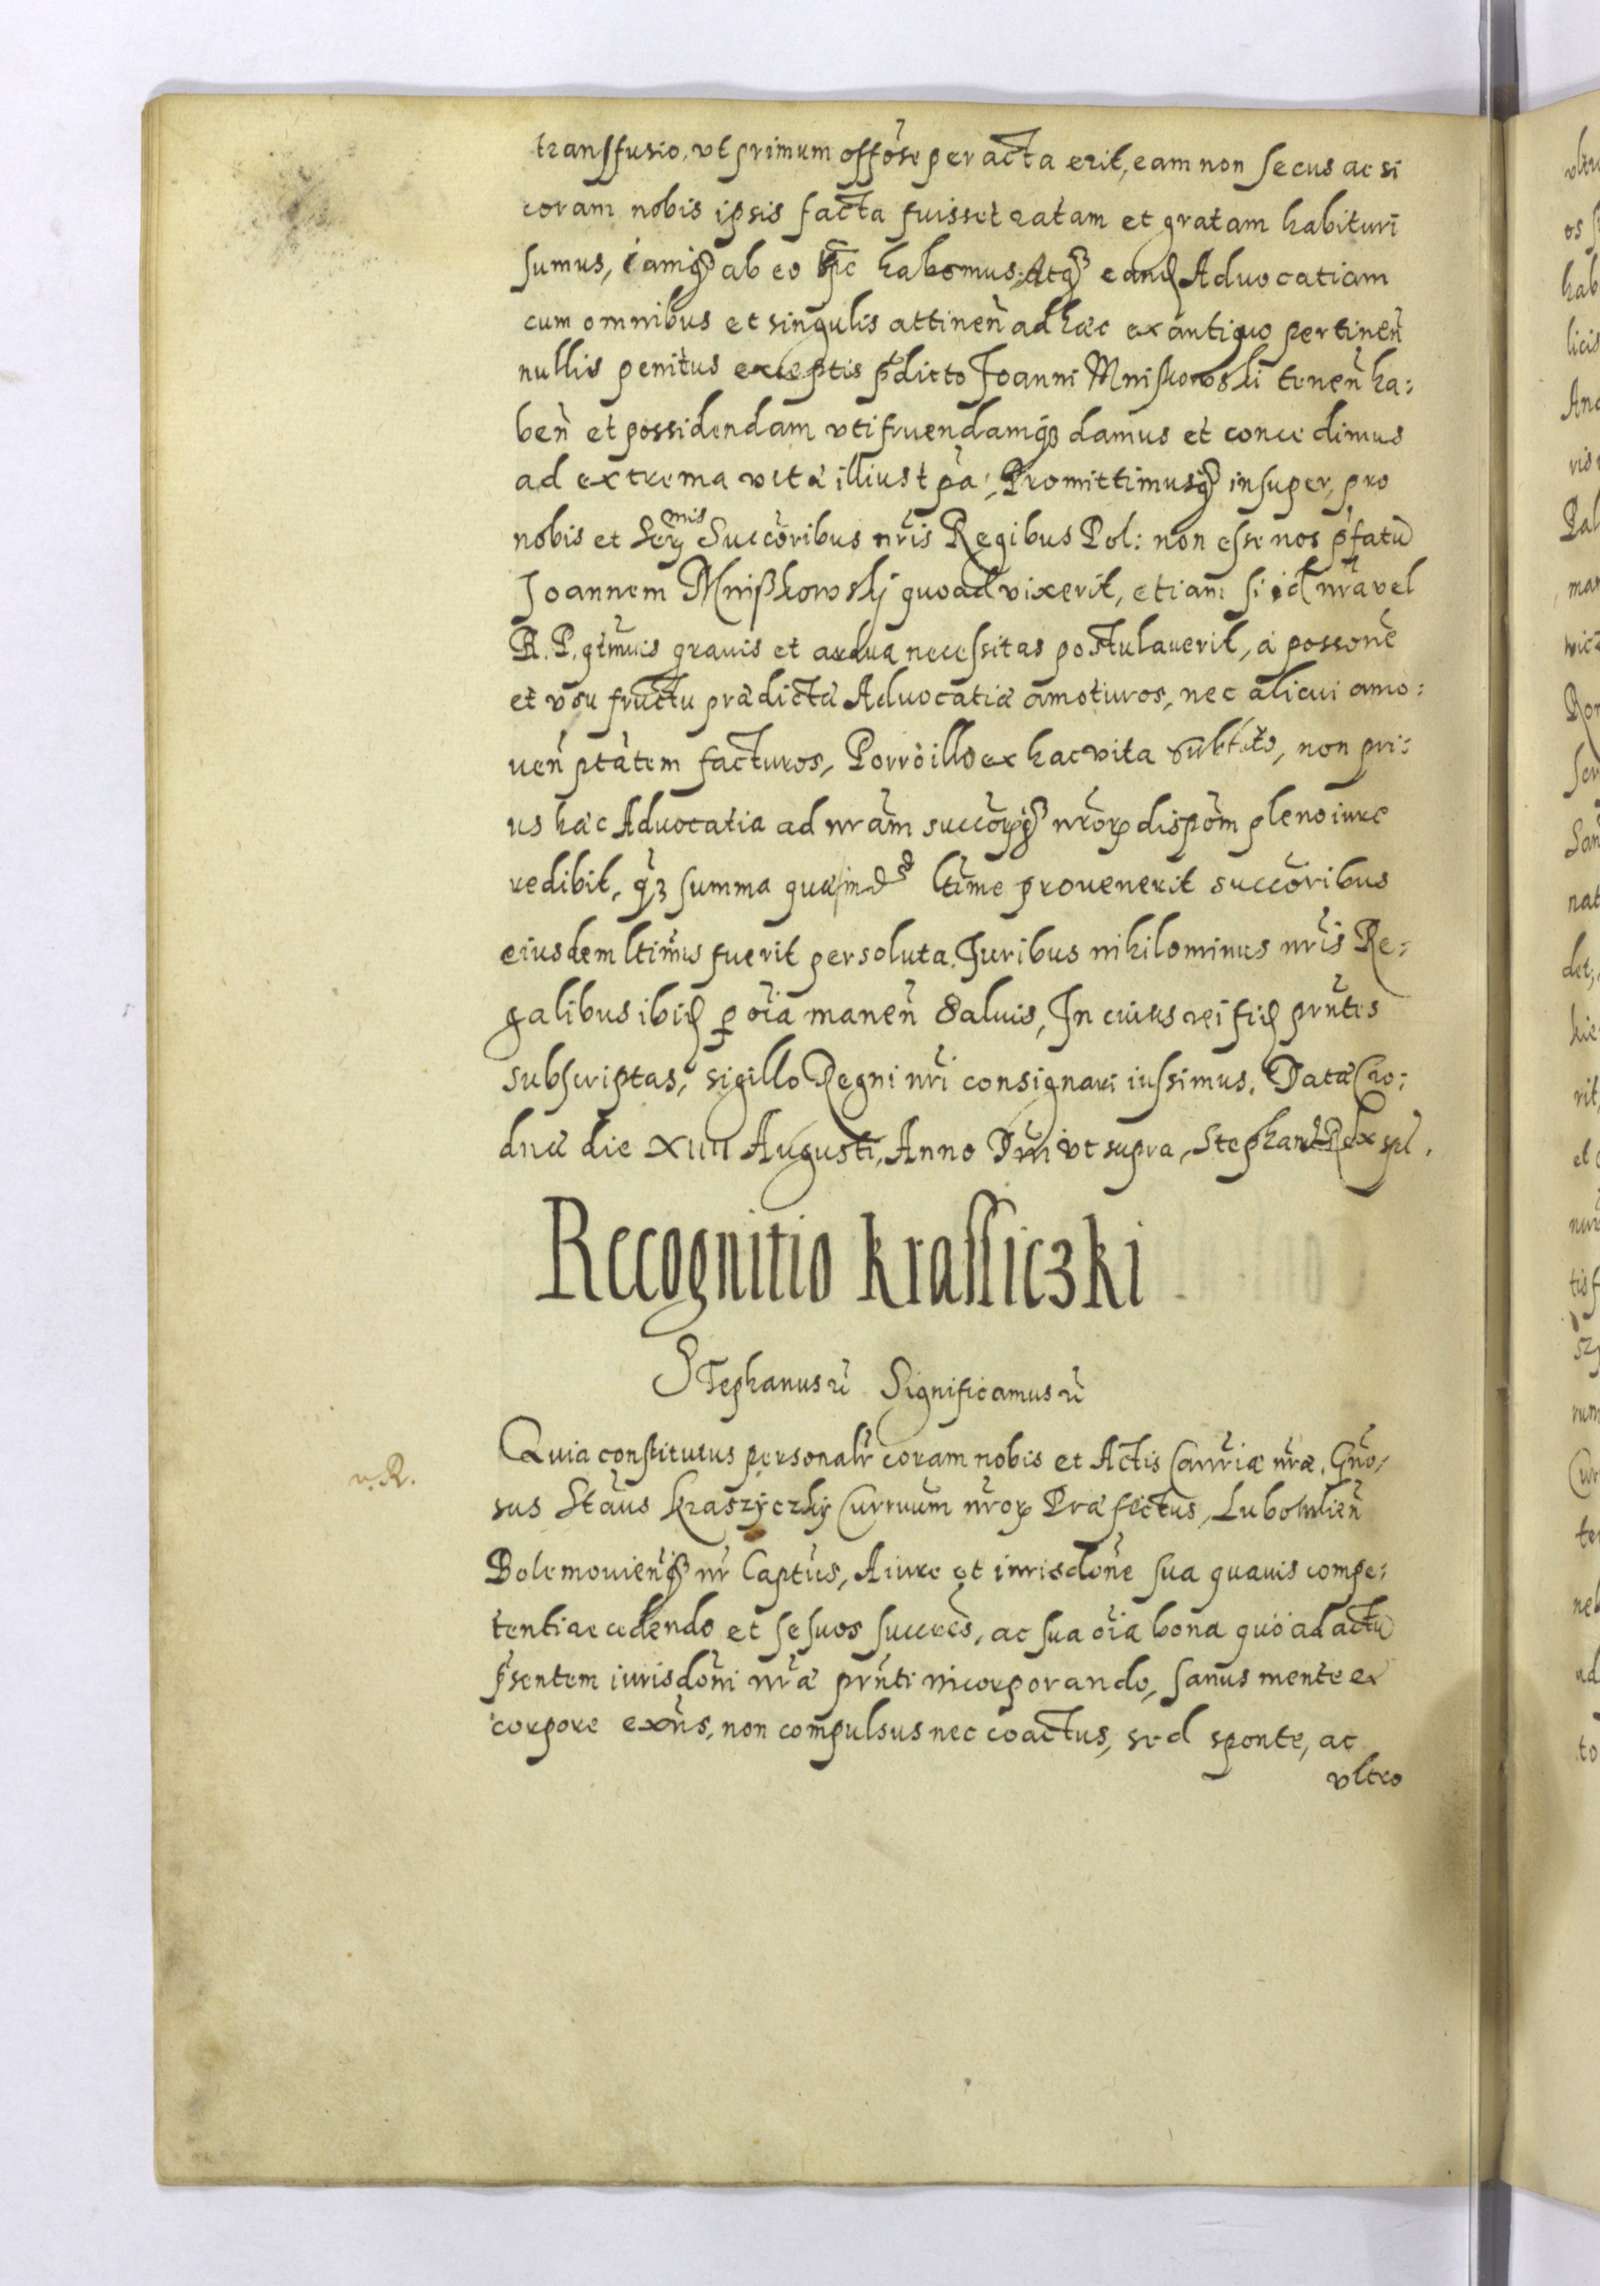 transfusio, vt primum offóse per acta erit, eam non secus ac si
coram nobis ipsis facta fuisset ratam et gratam habituri
sumus, iamq3 ab eo habemus, Atq3 eand Advocatiam
cum omnibus et singulis attineñ ad hæc ex antiquo pertineñ
nullis penitus exceptis pdicto Joanni Mniskowski teneñ ha:
beñ et possidendam vtifruendamq3 damus et concedimus
ad extrema vitæ illius tpa; Promittimusq3 insuper, pro
nobis et Ser mis Succoribus nris Regibus Pol: non esse nos pfatu
Joannem Mnißkowskÿ quoad vixerit, etiam si id nra vel
R. P. qtmuis grauis et ardua necessitas postulauerit, a possone
et vsu fructu prædictæ Advocatiæ amoturos, nec alicui amo:
ueñ ptatem facturos, Porro illo ex hac vita sublato, non pri:
us hæc Advocatia ad nram succorq3 nror dispom pleno iure
redibit, q3 summa quæ ltime prouenerit succoribus
eiusdem ltimis fuerit persoluta, Juribus nihilominus nris Re:
galibus ibid p oia maneñ saluis, In cuius rei fid prntes
subscriptas, sigillo Regni nri consignari iussimus. Datæ Gro:
dnæ die XIIII Augusti, Anno Dni vt supra, Stephans Rex sst.
Recognitio krassiczki
STephanus rc Significamus rc
Quia constitutus personalr coram nobis et Actis Cancriæ nræ, Gño,
v. R.
sus Staus Kraszÿczkÿ Curruum nror Præfectus, Lubomlieñ
Bolemouieñq3 nr Captus, A iure et iurisdone sua quauis compe:
tenti recedendo et se suos succes, ac sua oia bona quo ad actu
psentem iurisdoni nræ prnti incorporando, sanus mente et
corpore exns, non compulsus nec coactus, sed sponte, ac
vltro